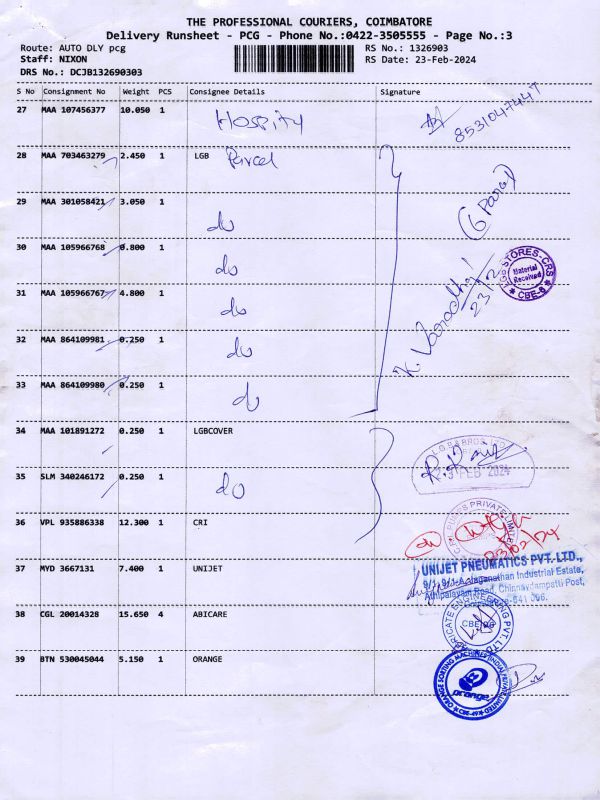 THE PROFESSIONAL COURIERS, COIMBATORE
Delivery Runsheet - PCG - Phone No.:0422-3505555 - Page No.:3
Route: AUTO DLY pcg RS No.: 1326903
Staff: NIXON RS Date: 23-Feb-2024
DRS No.: DCJB132690303
S No Consignment No Weight PCS Consignee Details Signature
27 MAA 107456377 10.050 1 Hospity 8531047447
28 MAA 703463279 2.450 1 LGB Parcel
29 MAA 301058421 3.050 1 do
(6 Parcel)
30 MAA 105966768 0.800 1 do
LGB STORES-CRS
Material
Received
* CBE-6 *
31 MAA 105966767 4.800 1 do
23/2
32 MAA 864109981 0.250 1 do
33 MAA 864109980 0.250 1 do
34 MAA 101891272 0.250 1 LGBCOVER
35 SLM 340246172 0.250 1 do
23 FEB 2024
36 VPL 935886338 12.300 1 CRI
PUMPS PRIVATE LIMITED
23/02/24
37 MYD 3667131 7.400 1 UNIJET
UNIJET PNEUMATICS PVT. LTD.,
Industrial Estate,
Athipalayam Road, Chinnavedampatti Post,
Coimbatore-641 006.
38 CGL 20014328 15.650 4 ABICARE
FABRICATE ENGINEERING PVT. LTD.
39 BTN 530045044 5.150 1 ORANGE
ORANGE SORTING MACHINES (INDIA) PRIVATE LIMITED
orange